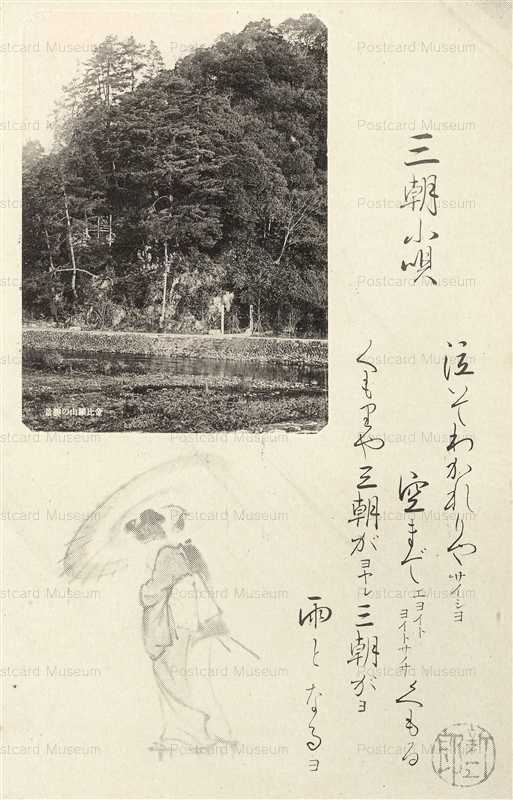 三朝小唄
泣いてわかれりやサイショ
空までエヨイト
ヨイトサノサ くもる
くもりや三朝がヨヤレ三朝がヨ
雨となるヨ
金比羅山の勝景
Postcard Museum